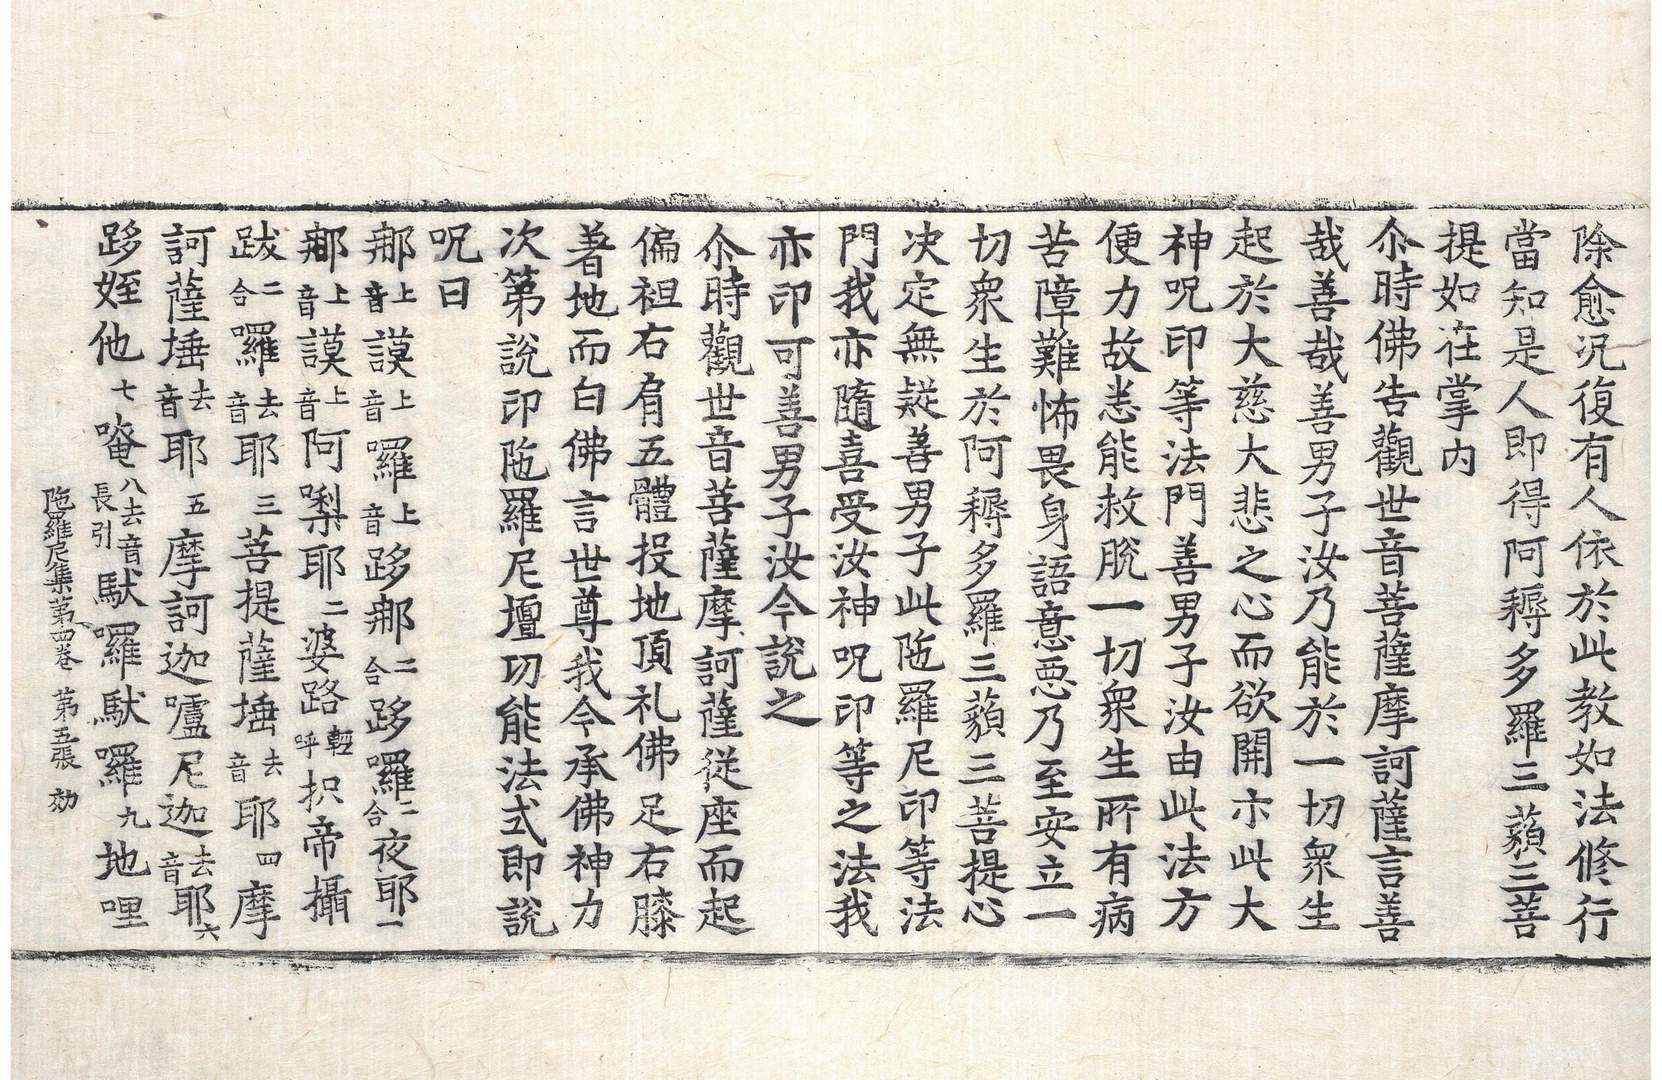 除愈況復有人依於此教如法修行
當知是人即得阿耨多羅三藐三菩
提如在掌内
尒時佛告觀世音菩薩摩訶薩言善
哉善哉善男子汝乃能於一切衆生
起於大慈大悲之心而欲開示此大
神呪印等法門善男子汝由此法方
便力故悉能救脫一切衆生所有病
苦障難怖畏身語意惡乃至安立一
切衆生於阿耨多羅三藐三菩提心
决定無疑善男子此陁羅尼印等法
門我亦隨喜受汝神呪印等之法我
亦印可善男子汝今說之
尒時觀世音菩薩摩訶薩從座而起
偏袒右肩五體投地頂礼佛足右膝
著地而白佛言世尊我今承佛神力
次第說印陁羅尼壇功能法式即說
呪曰
那上音謨上音囉上音跢那二合跢囉二合夜耶一
那上音謨上音阿㗚耶二婆路輕呼枳帝攝
跋二合囉去音耶三菩提薩埵去音耶四摩
訶薩埵去音耶五摩訶迦嚧尼迦去音耶六
跢姪他七唵八去音長引馱囉馱囉九地哩
陁羅尼集第四卷 第五張 効